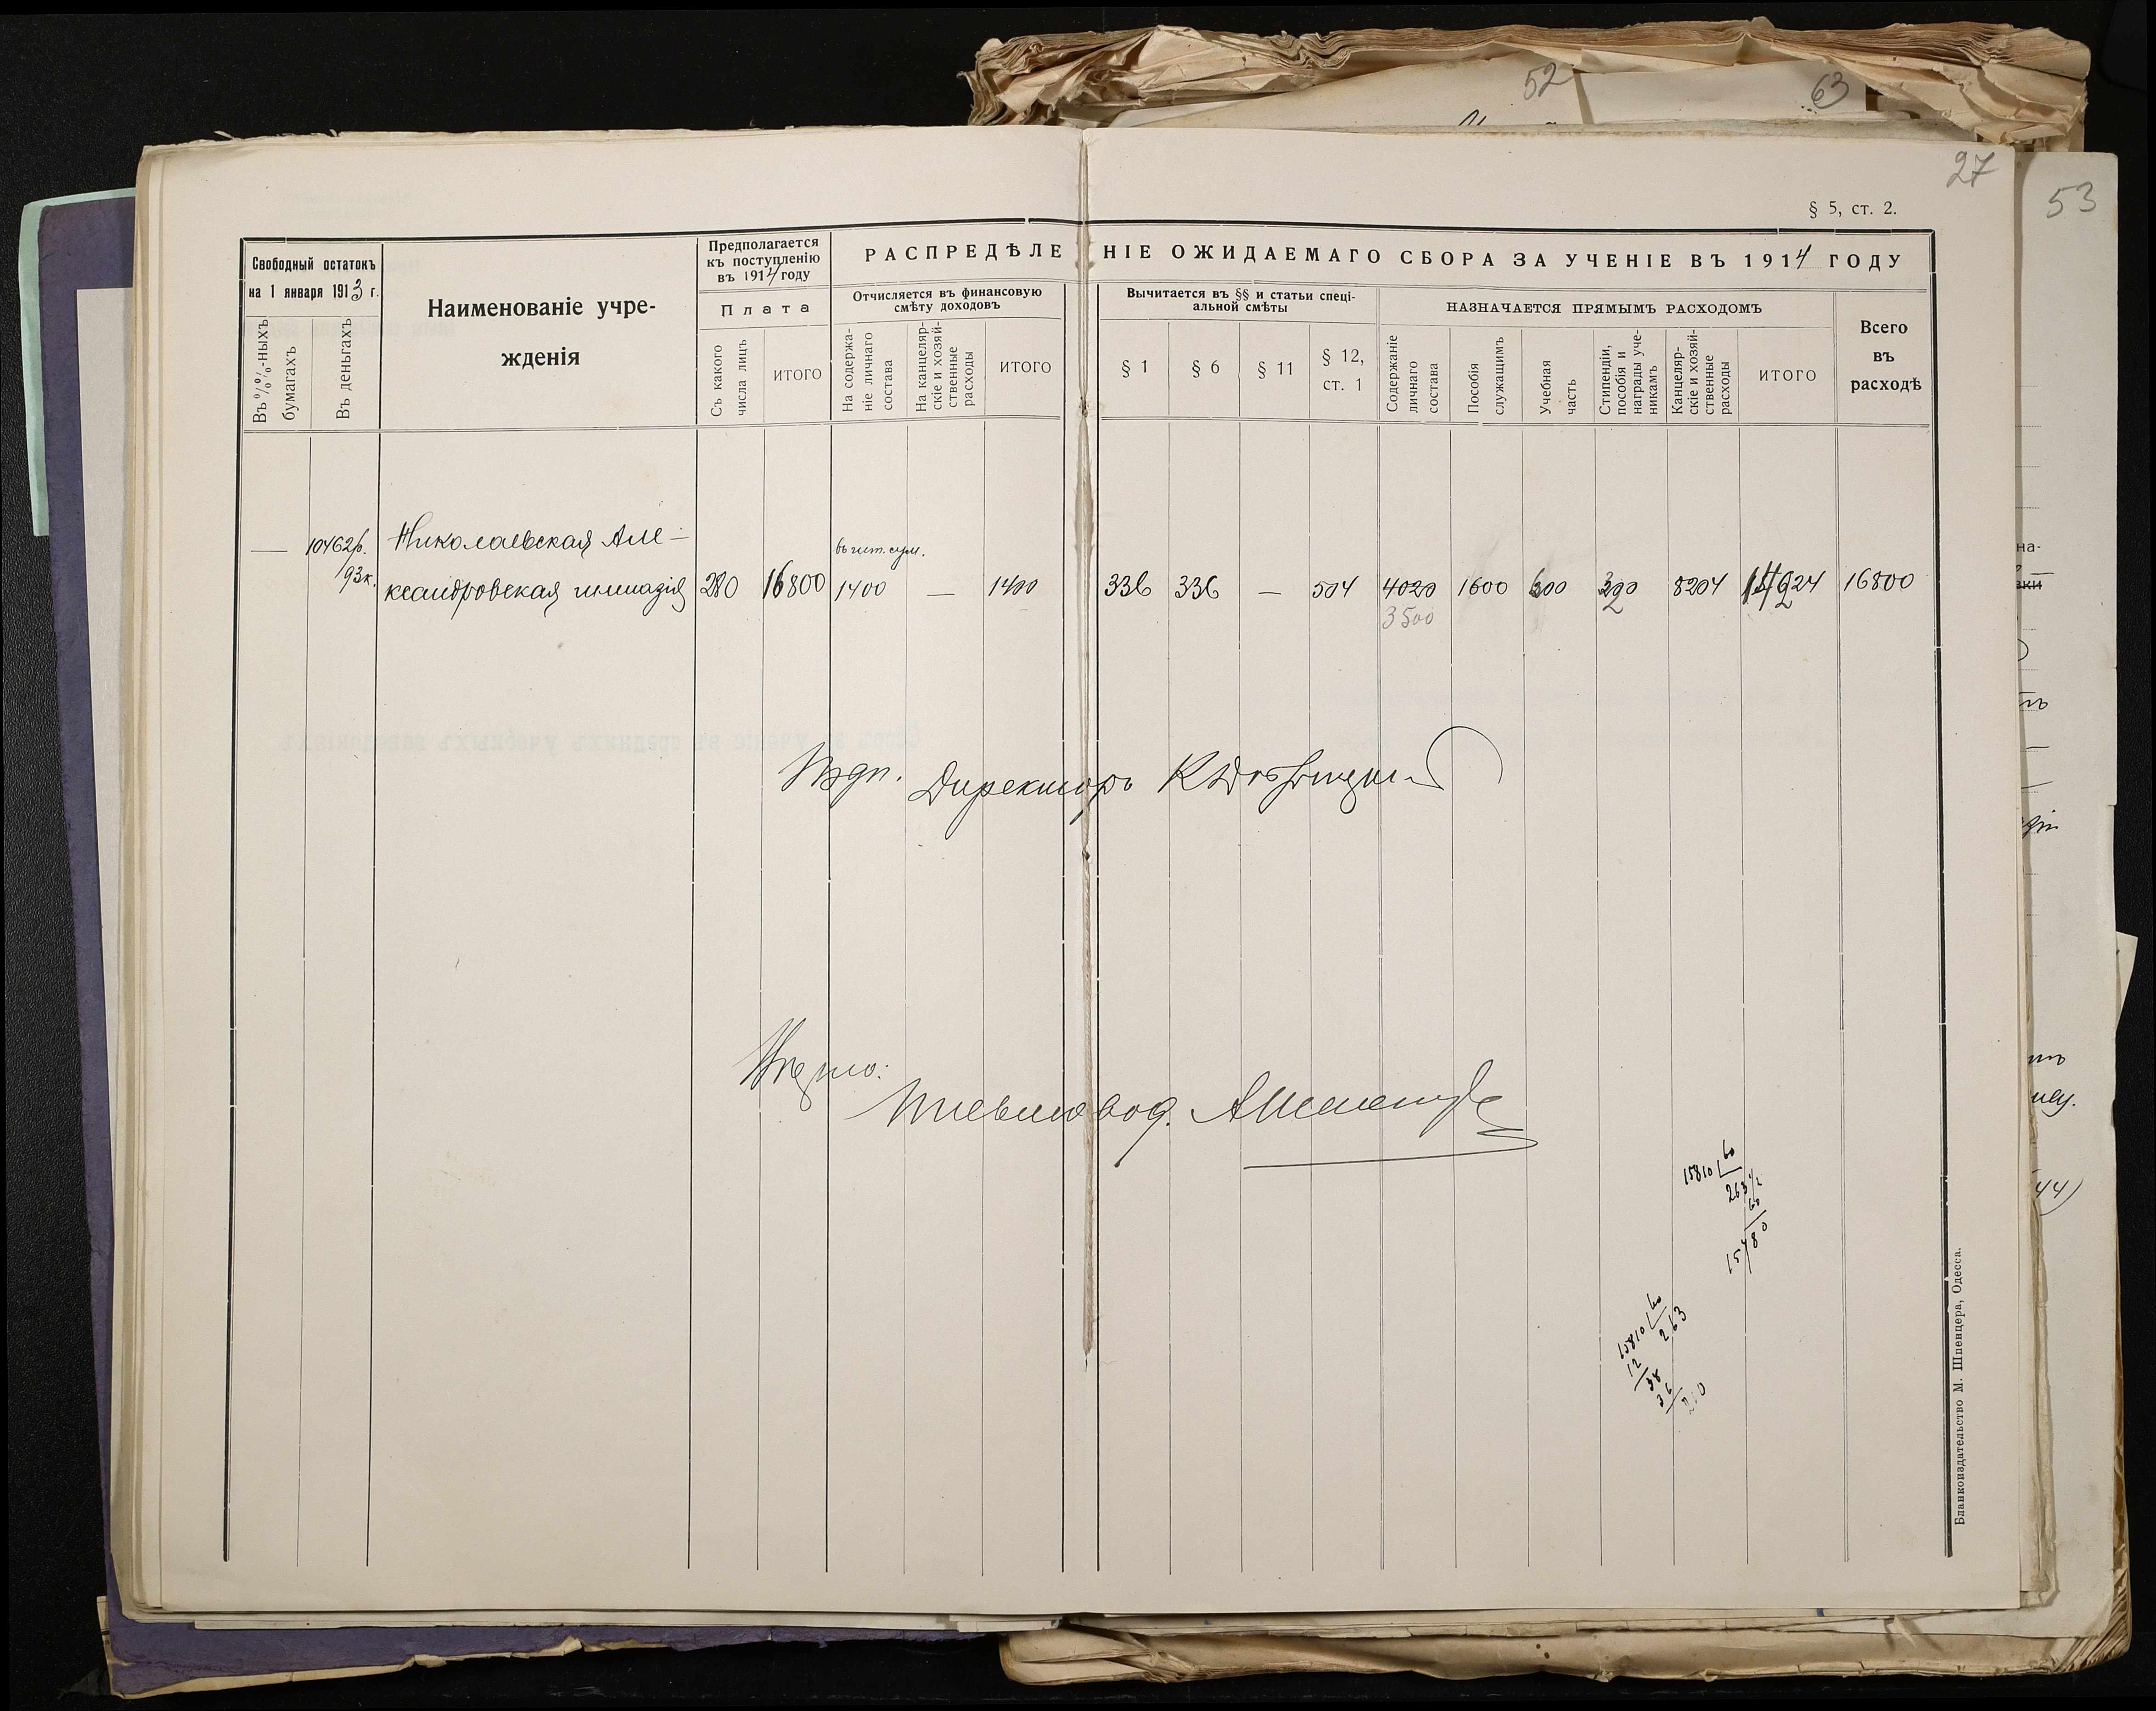 52
63
27
53
§ 5, ст. 2.
Свободный остатокъ
на 1 января 1913 г.
Въ %%-ныхъ бумагахъ
Въ деньгахъ
Наименованіе учре-
жденія
Предполагается
къ поступленію
въ 1914 году
Плата
Съ какого числа лицъ
ИТОГО
РАСПРЕДѢЛЕНІЕ ОЖИДАЕМАГО СБОРА ЗА УЧЕНІЕ ВЪ 1914 ГОДУ
Отчисляется въ финансовую
смѣту доходовъ
На содержа-
ніе личнаго
состава
На канцеляр-
скіе и хозяй-
ственные
расходы
ИТОГО
Вычитается въ §§ и статьи спеці-
альной смѣты
§ 1
§ 6
§ 11
§ 12,
ст. 1
НАЗНАЧАЕТСЯ ПРЯМЫМЪ РАСХОДОМЪ
Содержаніе
личнаго
состава
Пособія
служащимъ
Учебная
часть
Стипендіи,
пособія и
награды уче-
никамъ
Канцеляр-
скіе и хозяй-
ственные
расходы
ИТОГО
Всего
въ
расходѣ
— 10462р. Николаевская Але-
93к. ксандровская гимназія 280 16800 1400 — 1400 336 336 — 504 4020 1600 600 8204 16800
3500
Директоръ
Вѣрно:
Письмовод.
15810 60
263 1/2
60
15780
15810 60
12 263
38
36
210
Бланкоиздательство М. Шпенцера, Одесса.
44)